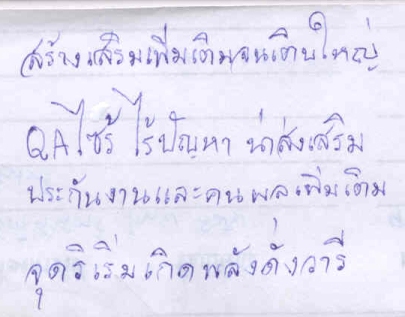 สร้างเสริมเพิ่มเติมจนเติบใหญ่
QA ไซร้ ไร้ปัญหา น่าส่งเสริม
ประกันงานและคนผลเพิ่มเติม
จุดริเริ่มเกิดพลังดั่งวารี